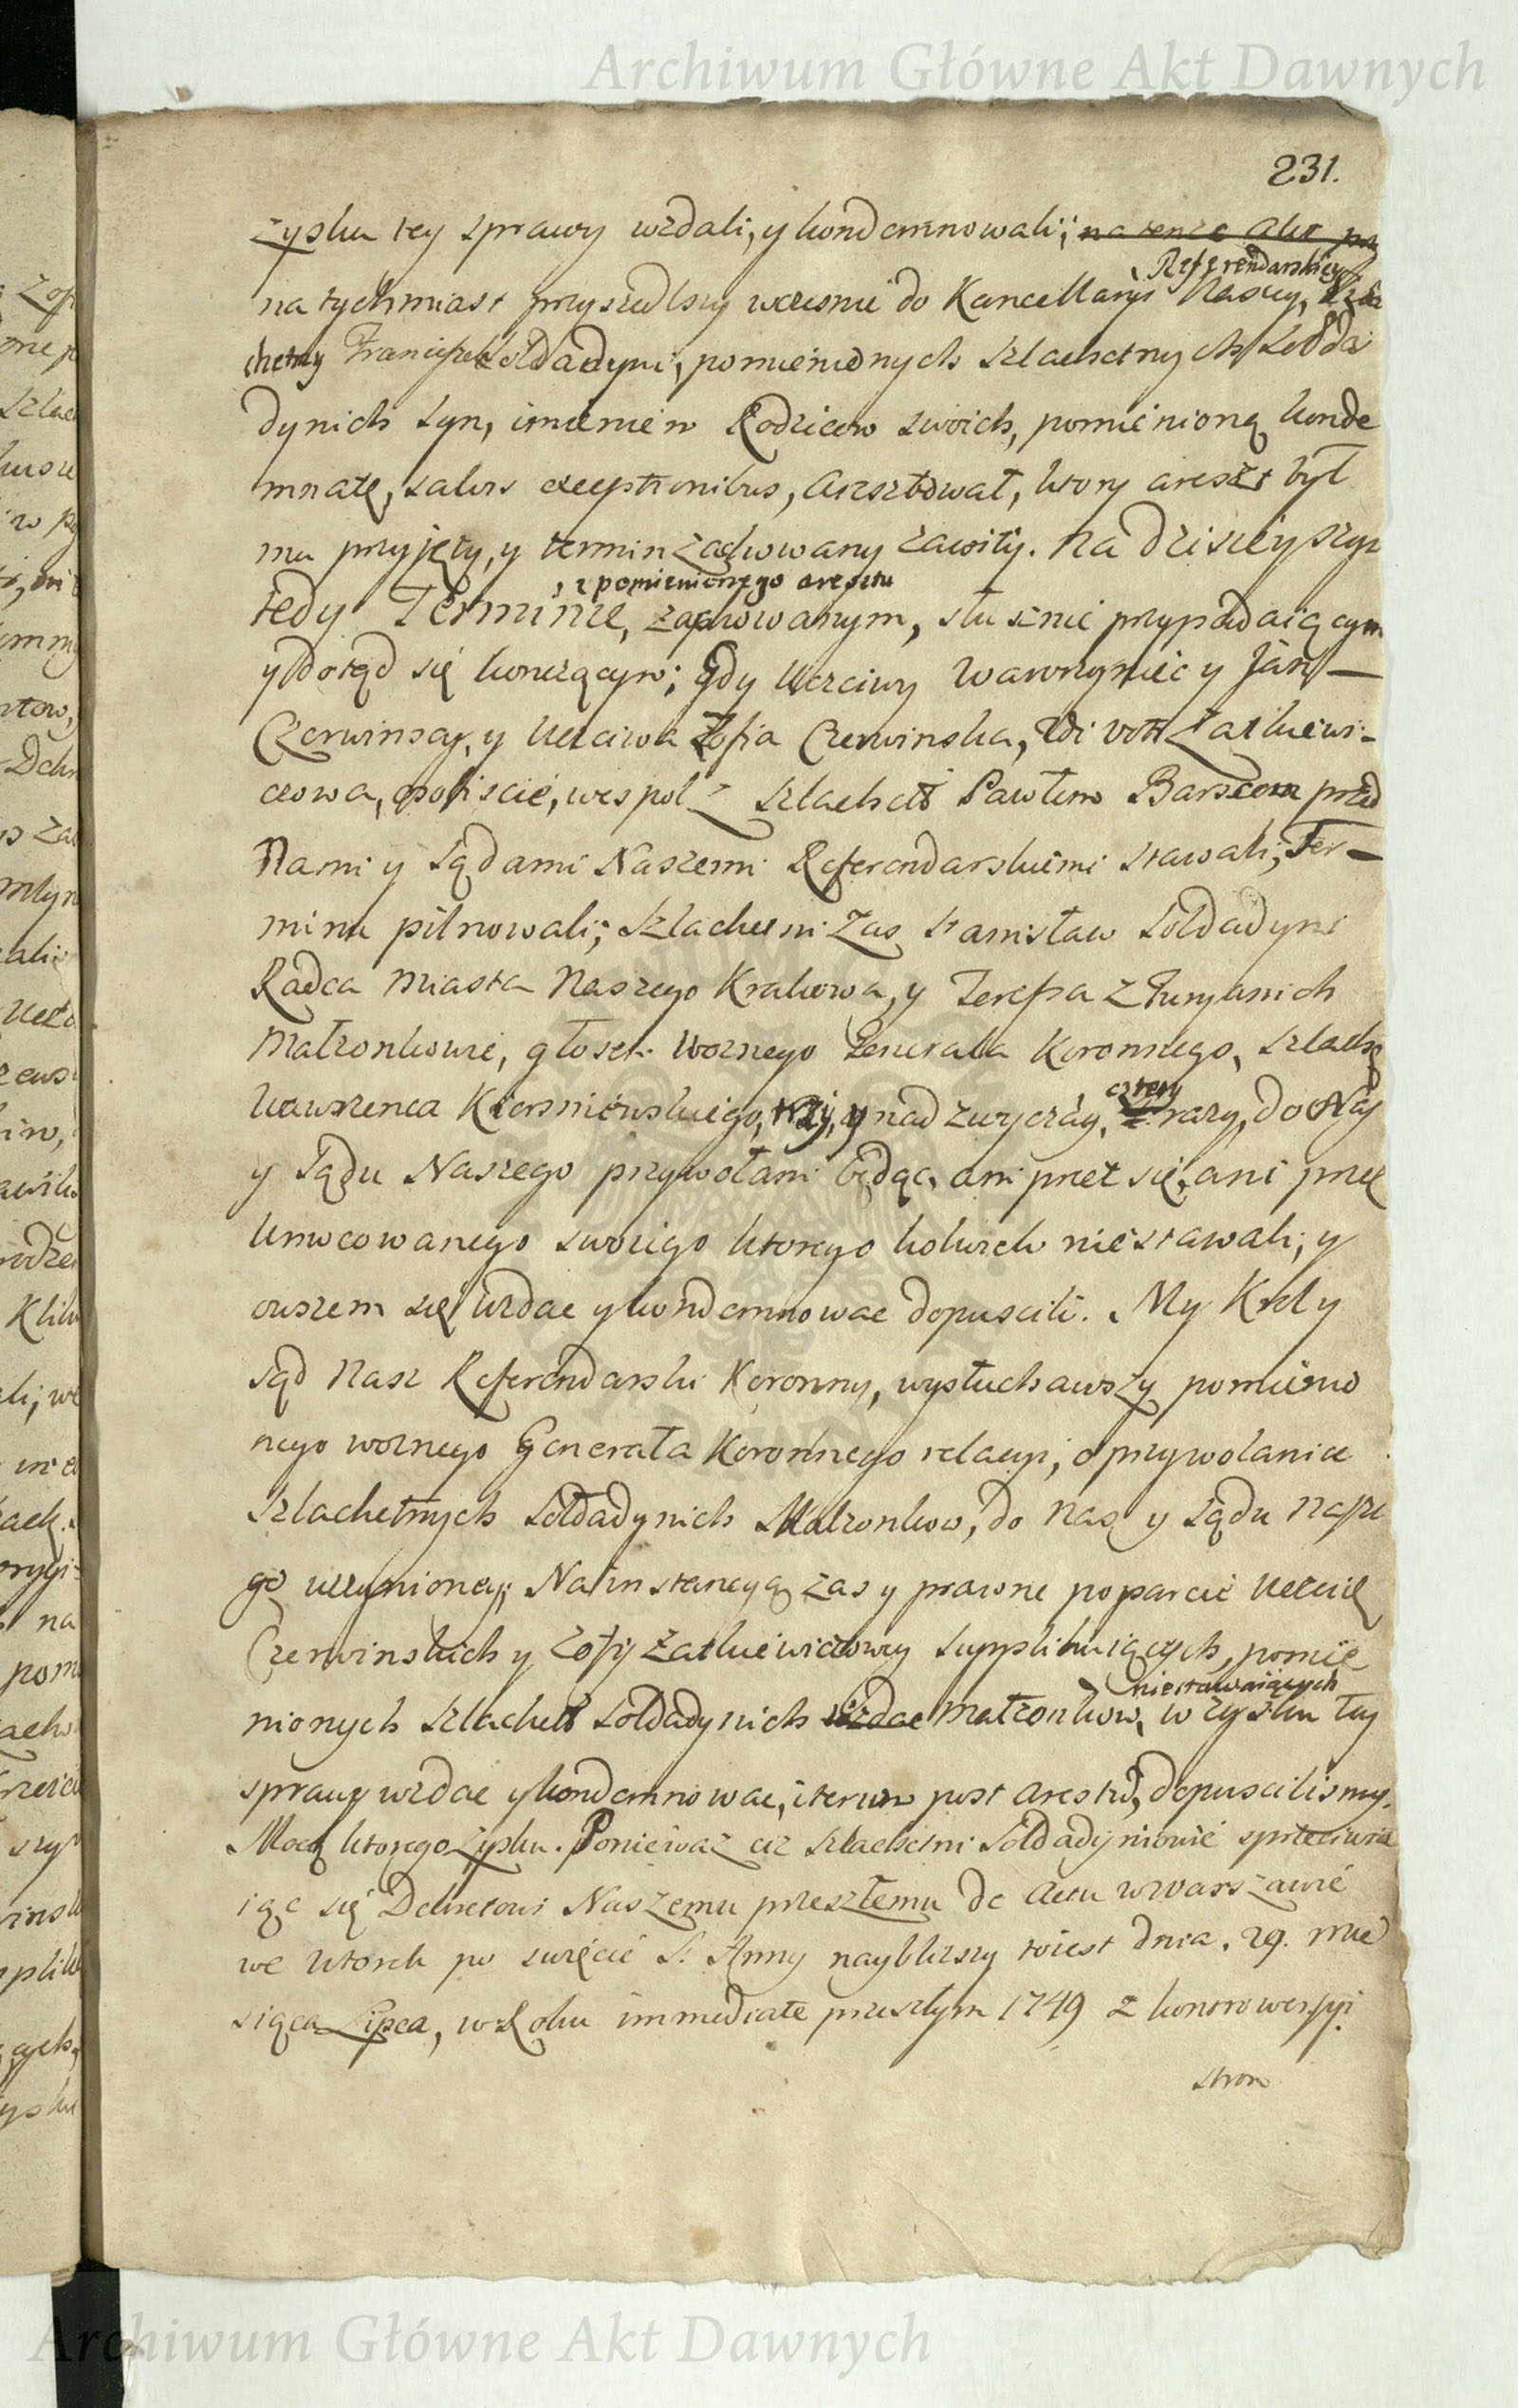 Archiwum Główne Akt Dawnych
231.
zysku tey sprawy wzdali, y kondemnowali; na tenże akt prz
Referendarskiey
natychmiast przyszedłszy wczesnie do Kancellaryi Naszey, Szla
chetny Franciszek Soldadyni, pomienionych Szlachetnych Solda
dynich Syn, imieniem Rodzicow swoich, pomienioną konde
mnatę, salvis exceptionibus, aresztował, ktory areszt był
mu przyjęty, y termin zachowany zawity. Na dzisieyszym
, z pomienionego aresztu
tedy Terminie, zachowanym, słusznie przypadaiącym
y dotąd się kończącym; gdy Uczciwy Wawrzyniec y Jan
Czerwinscy, y Uczciwa Zofia Czerwinska,
cowa, osobiscie, wespoł z Szlachet Pawłem Barscem przed
Nami y Sądami Naszemi Referendarskiemi stawali; Ter-
minu pilnowali; Szlachetni zas Stanisław Soldadyni
Radca Miasta Naszego Krakowa, y Teressa z
Małżonkowie, głosem Woznego Generała Koronnego, Szlach
Wawrzenca trzy, y nad zwyczay,
cztery
razy, do Nas
y Sądu Naszego przywołani będąc, ani przez się, ani przez
Umocowanego swoiego ktorego kolwiek niestawali; y
owszem się wzdac y kondemnowac dopuscili. My Krol y
Sąd Nasz Referendarski Koronny, wysłuchawszy pomienio
nego woznego Generała Koronnego relacyi, o przywołanie
Szlachetnych Sołdadynich Małzonkow, do Nas y Sądu Nasze
go uczynioney; Na instancyą zas y prawne poparcie Uczciw
Czerwinskich y Zofij supplikuiących, pomie
niestawaiących
nionych Szlachet Soldadynich wzdac Małżonkow, w zysku tey
sprawy wzdac y kondemnowac, iterum post Arestu, dopuscilismy.
Mocą ktorego zysku. Poniewaz ciz Szlachetni Soldadyniowie sprzeciwia
iąc się Dekretowi Naszemu przeszłemu de Actu w Warszawie
we Wtorek po swięcie S. Anny naybliszy to iest dnia. 29. Mie
siąca Lipca, w Roku immediate przeszłym 1749 z kontrowersyi
stron
Archiwum Główne Akt Dawnych